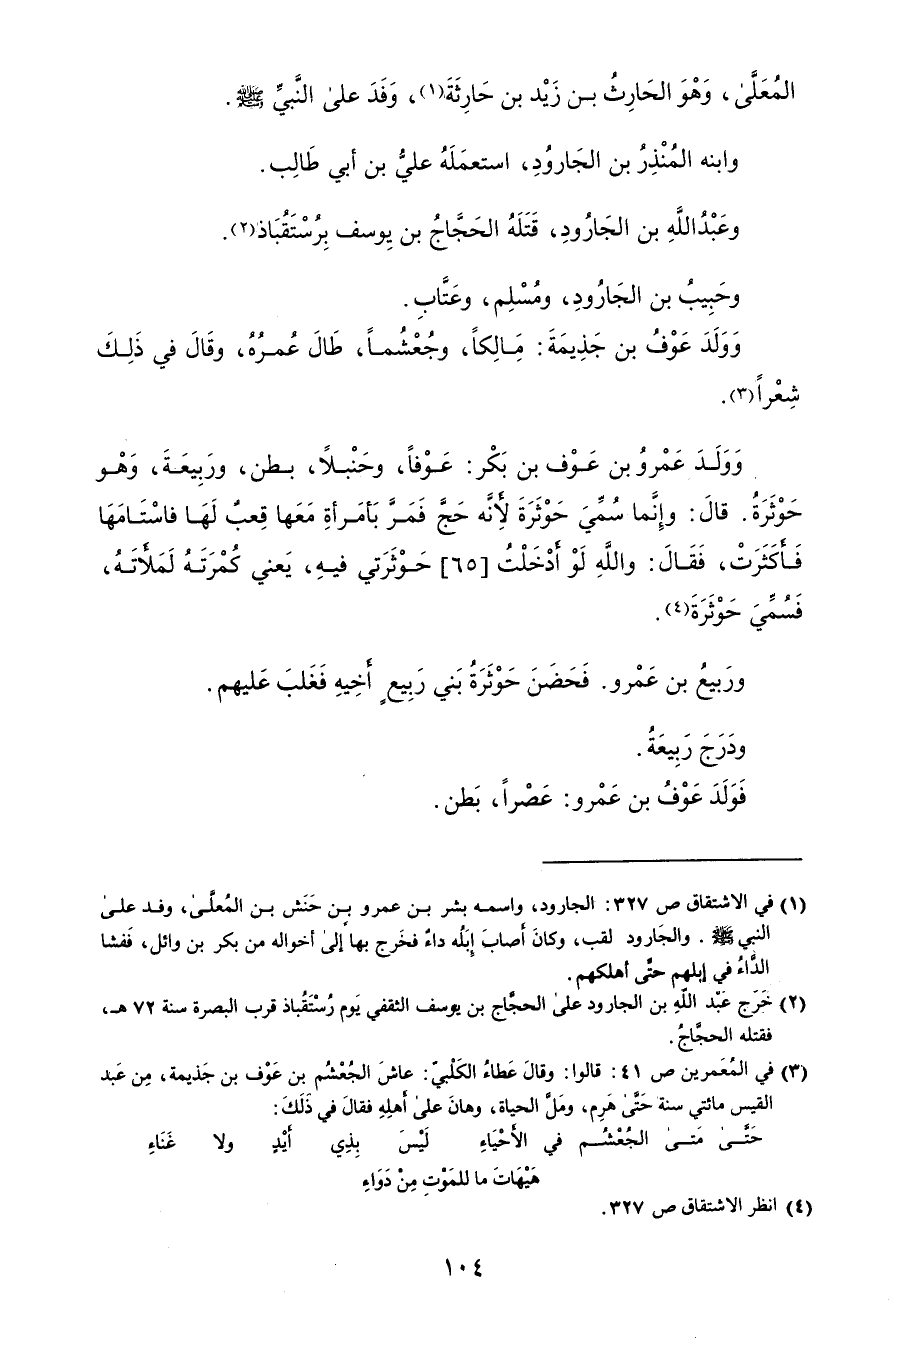 المُعَلَّىٰ، وَهْوَ الحَارِثُ بـن زَيْد بن حَارِثَة(١)، وَفَدَ علىٰ النَّبيِّ ﷺ.
وابنه المُنْذِرُ بن الجَاروُدِ، استعمَلَهُ عليُّ بن أبي طَالِب.
وعَبْدُاللَّهِ بن الجَارُودِ، قَتَلَهُ الحَجَّاجُ بن يوسف بِرُسْتَقُبَاذ(٢).
وحَبِيبُ بن الجَارُودِ، ومُسْلِم، وعَتَّاب.
وَوَلَدَ عَوْفُ بن جَذِيمَةَ: مَالِكاً، وجُعْشُماً، طَالَ عُمرُهُ، وقَالَ في ذَلِكَ
شِعْراً(٣).
وَوَلَدَ عَمْروُ بن عَوْف بن بَكْر: عَوْفاً، وحَنْبلاً، بطن، وربِيعَةَ، وَهْو
حَوْثَرَةُ. قالَ: وإنَّما سُمِّيَ حَوْثَرَةَ لأنَّه حَجَّ فَمَرَّ بَأمرأةٍ مَعَها قِعبٌ لَهَا فاسْتَامَهَا
فَأَكَثَرَتْ، فَقَالَ: واللَّهِ لَوْ أَدْخَلْتُ [٦٥] حَوْثَرَتي فيهِ، يَعني كُمْرَتَهُ لَمَلَأتَهُ،
فَسُمِّيَ حَوْثَرَة(٤).
ورَبيعُ بن عَمْرو. فَحَضَنَ حَوْثَرَةُ بَني رَبِيعٍ أَخِيهِ فَغَلبَ عَليهم.
ودَرَجَ رَبِيعَةُ.
فَوَلَدَ عَوْفُ بن عَمْرو: عَصْراً، بَطن.
(١) في الاشتقاق ص ٣٢٧: الجارود، واسمه بشر بن عمرو بن حَنَش بن المُعلَّىٰ، وفد علىٰ
النبي ﷺ. والجَارود لقب، وكانَ أصابَ إبلَه داءٌ فخَرج بها إلىٰ أخواله من بكر بن وائل، فَفشا
الدَّاءُ في إبلهم حتَّى أهلكهم.
(٢) خَرَج عبْد اللّهِ بن الجارود علىٰ الحجَّاج بن يوسف الثقفي يَوم رُسْتَقُباذ قرب البصرة سنة ٧٢ هـ،
فقتله الحجَّاجُ.
(٣) في المُعَمرين ص ٤١: قالوا: وقالَ عَطاءُ الكَلْبيّ: عاشَ الجُعْشُم بن عَوْف بن جَذيمة، مِن عَبد
القيس مائتي سنة حَتَّىٰ هَرِم، ومَلَّ الحياة، وهانَ علىٰ أهلِهِ فقالَ في ذَلَكَ:
حَتَّـىٰ مَتـىٰ الجُعْشُـم في الأحْيَاءِ لَيْسَ بِذِي أَيْدٍ ولا غَنَاءِ
هَيْهَاتَ ما للمَوْتِ مِنْ دَوَاءِ
(٤) انظر الاشتقاق ص ٣٢٧.
١٠٤